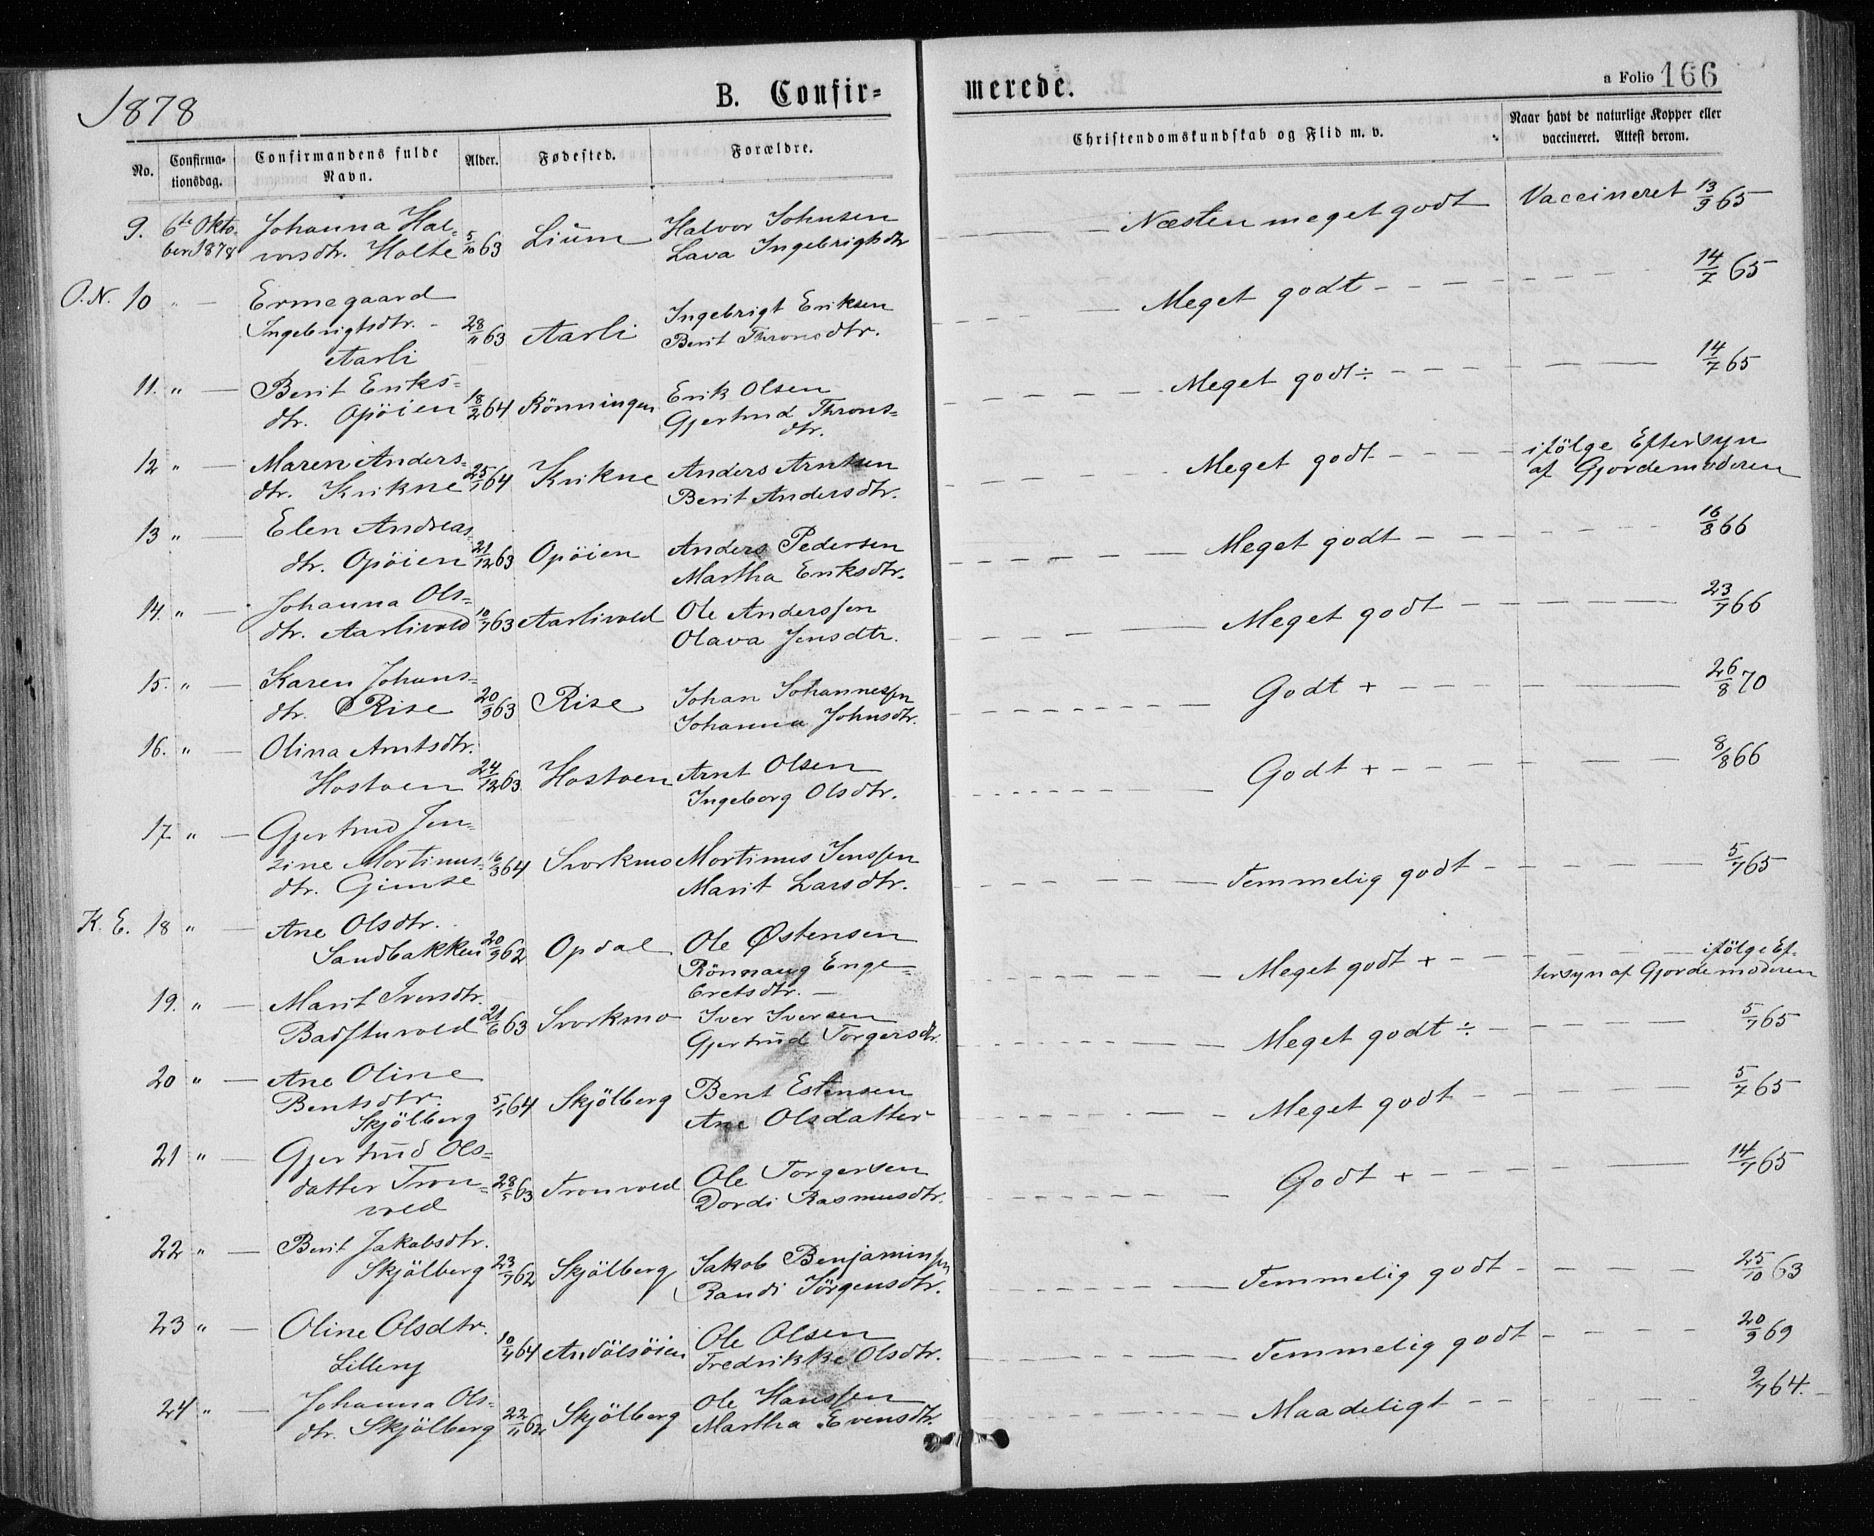 1878
B. Confir-
merede.
a Folio 166
No.
Confirma-
tionsdag.
Confirmandens fulde
Navn.
Alder.
Fødested.
Forældre.
Christendomskundskab og Flid m. v.
Naar havt de naturlige Kopper eller
vaccineret. Attest derom.
9. 6te Okto- Johanna Hal- 5/10 63 Lium Halvor Johnsen Næsten meget godt Vaccineret 13/9 65
ber 1878 vorsdtr. Holte Lava Ingebrigtsdtr
O.N. 10 " — Ermegaard Ingebrigt Eriksen Meget godt 14/7 65
Ingebrigtsdtr. 28/11 63 Aarli Berit Thronsdtr.
Aarli
11. " — Berit Eriks- 18/2 64 Rönningen Erik Olsen Meget godt ÷ 14/7 65
dtr. Opöien Gjertrud Throns-
dtr.
12 " — Maren Anders- 25/1 64 Krikne Anders Arntsen Meget godt ifölge Eftersyn
dtr. Krikne Berit Andersdtr. af Gjordemoderen
13 " — Elen Andreas- 21/12 63 Opöien Anders Pedersen Meget godt 16/8 66
dtr. Opöien Martha Eriksdtr.
14. " — Johanna Ols- 10/7 63 Aarlivold Ole Anderssen Meget godt 23/7 66
dtr. Aarlivold Olava Jensdtr.
15. " — Karen Johans- 20/9 63 Rise Johan Johannessen Godt + 26/8 70
dtr. Rise Johanna Johnsdtr.
16. " — Olina Arntsdtr. 24/12 63 Hostoen Arnt Olsen Godt + 8/8 66
Hostoen Ingeborg Olsdtr.
17 " — Gjertrud Jen-
sine Mortinus- 16/3 64 Svorkmo Mortinus Jenssen Temmelig godt 5/7 65
dtr. Gimse Marit Larsdtr.
K. E. 18 " — Ane Olsdtr. 20/9 62 Opdal Ole Østensen Meget godt + ifölge Ef-
Sandbakken Rönnaug Enge- tersyn af Gjordemoderen
bretsdtr. —
19. " — Marit Iversdtr. 21/6 63 Svorkmo Iver Iversen Meget godt ÷ 5/7 65
Badstuvold Gjertrud Torgersdtr.
20 " — Ane Oline 5/1 64 Skjölberg Bent Estensen Meget godt 5/7 65
Bentsdtr. Ane Olsdatter
Skjölberg
21 " — Gjertrud Ols-
datter Tron- 28/5 63 Tronvold Ole Torgersen Godt + 14/7 65
vold Dordi Rasmusdtr.
22 " — Berit Jakobsdtr. 23/7 62 Skjölberg Jakob Benjaminsen Temmelig godt 25/10 63
Skjölberg Randi Jörgensdtr.
23 " — Oline Olsdtr. 10/4 64 Andölsöien Ole Olsen Temmelig godt 20/9 69
Lilleng Fredrikke Olsdtr.
24 " — Johanna Ols- 22/11 62 Skjölberg Ole Hanssen Maadeligt 9/7 64.
dtr. Skjölberg Martha Evensdtr.